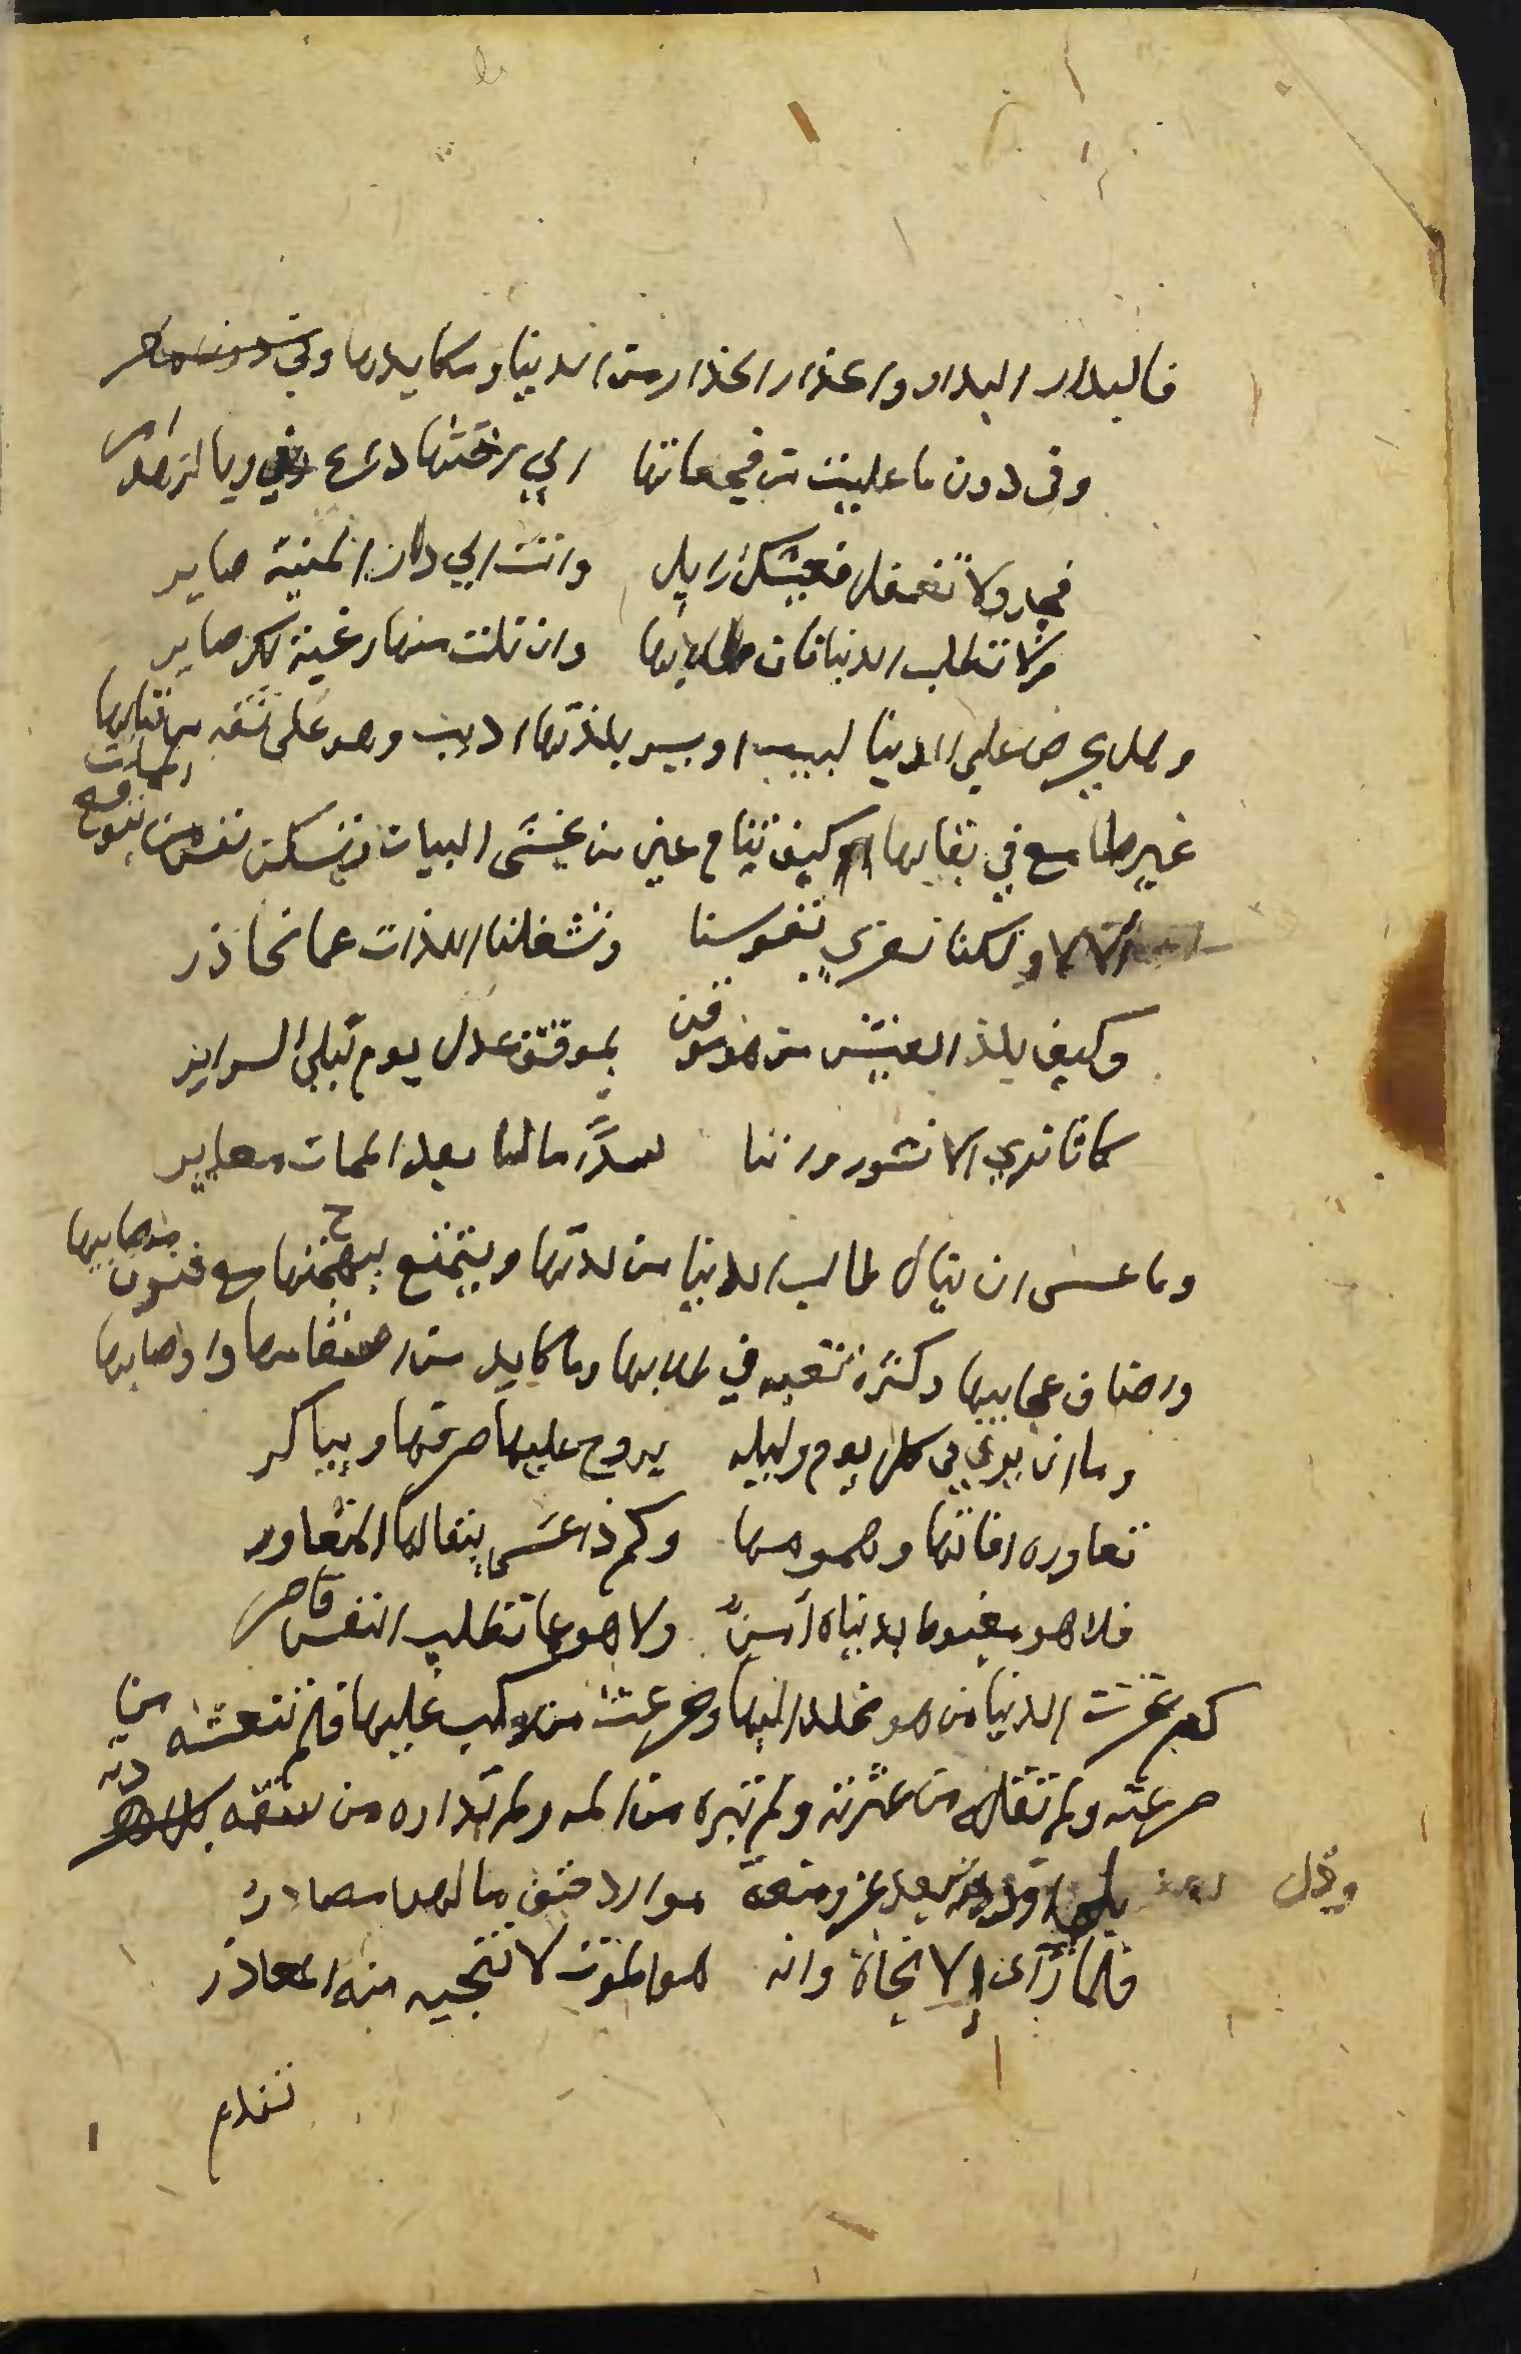 فالبدار البدار والحذار الحذار من الدنيا ومكايدها وفي
وفي دون ما عاينت من فجعاتها الي رفضها داع وبالزهد امر
فجد ولا تغفل فعيشك زايل وانت الي دار المنية صاير
ولا تطلب الدنيا فان طلابها وان نلت منها رغبة لك صاير
وهل يحرص علي الدنيا لبيب او يسر بلذتها اديب وهو على ثقه من فنايها
غير طامع في بقايها ام كيف تنام عين من يخشى البيات وتسكن نفس من يتوقع الممات
الا لا ولكنا نعزي نفوسنا وتشغلنا اللذات عما نحاذر
وكيف يلذ العيش من هو موقن بموقف عدل يوم تبلي السراير
كانا نري الا نشور واننا سدًا مالنا بعد الممات مصاير
وما عسى ان ينال طالب الدنيا من لذتها ويتمتع ببهجتها مع فنون مصايبها
واصناف عجايبها وكثرة تعبه في طلابها وما كابد من اسقامها واوصابها
وما ان نري في كل يوم وليله يروح عليها صرفها ويباكر
تعاوره افاتها وهمومها وكم ذا عسى يبقا لها المتعاور
فلا هو مغبوط بدنياه آمنٌ ولا هو عما تطلب النفس قاصر
كم غرت الدنيا من هو مخلد اليها وصرعت من مكب عليها فلم تنعشه من
صرعته ولم تقله من عثرته ولم تبره من المه ولم تداوه من سقمه
بلي اوردته بعد عز ومنعة موارد حتف مالهن مصادر
فلما رآى الا نجاة وانه هو الموت لا تنجيه منه المعاذر
تندم